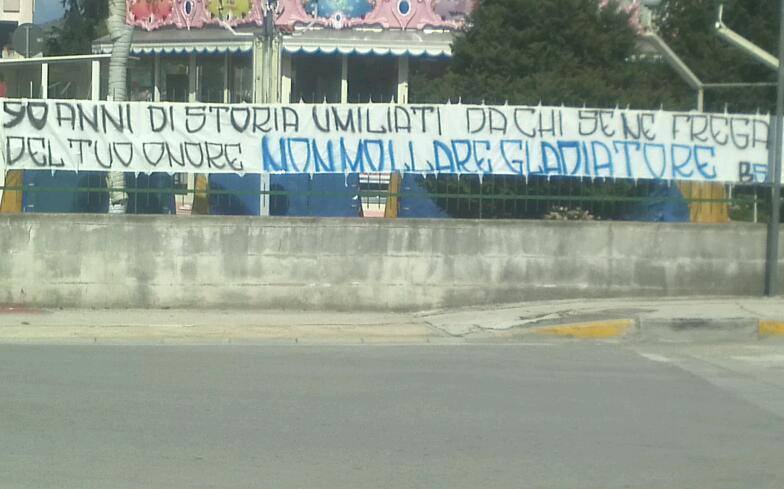 90 ANNI DI STORIA UMILIATI DA CHI SE NE FREGA
DEL TUO ONORE NON MOLLARE GLADIATORE BS